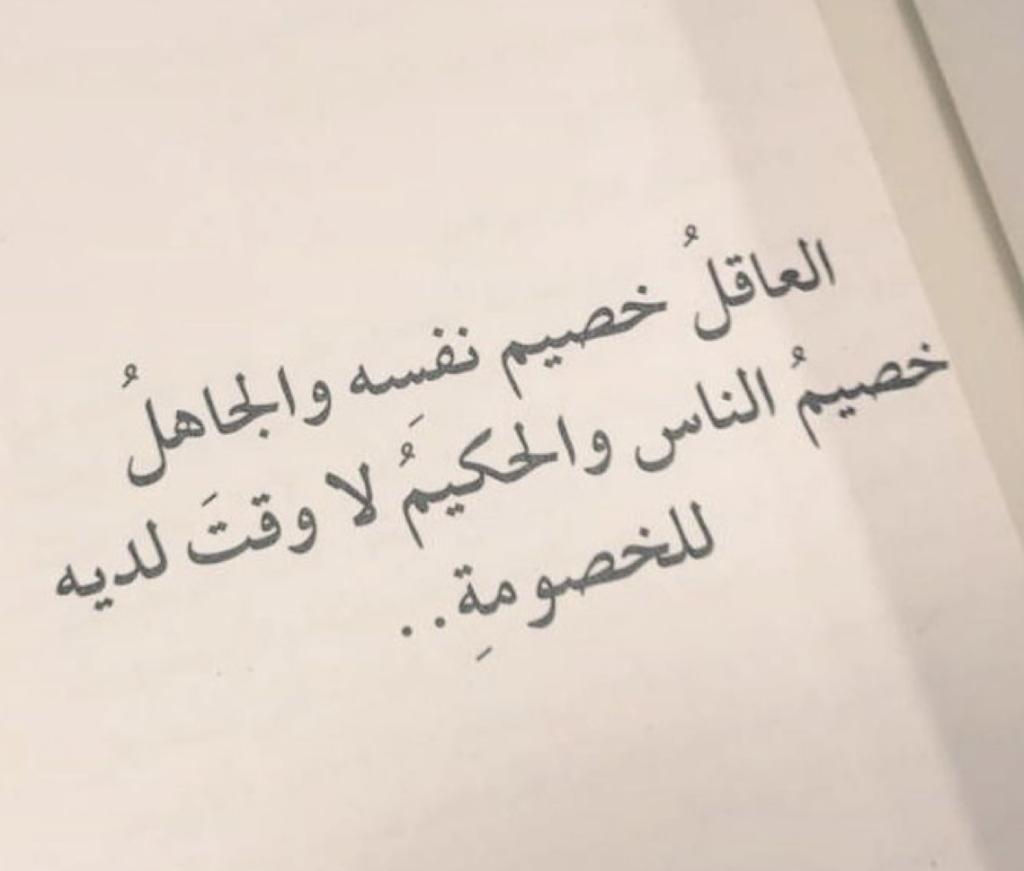 العاقلُ خصيم نفسَه والجاهلُ
خصيمُ الناس والحكيمُ لا وقتَ لديه
للخصومةِ..